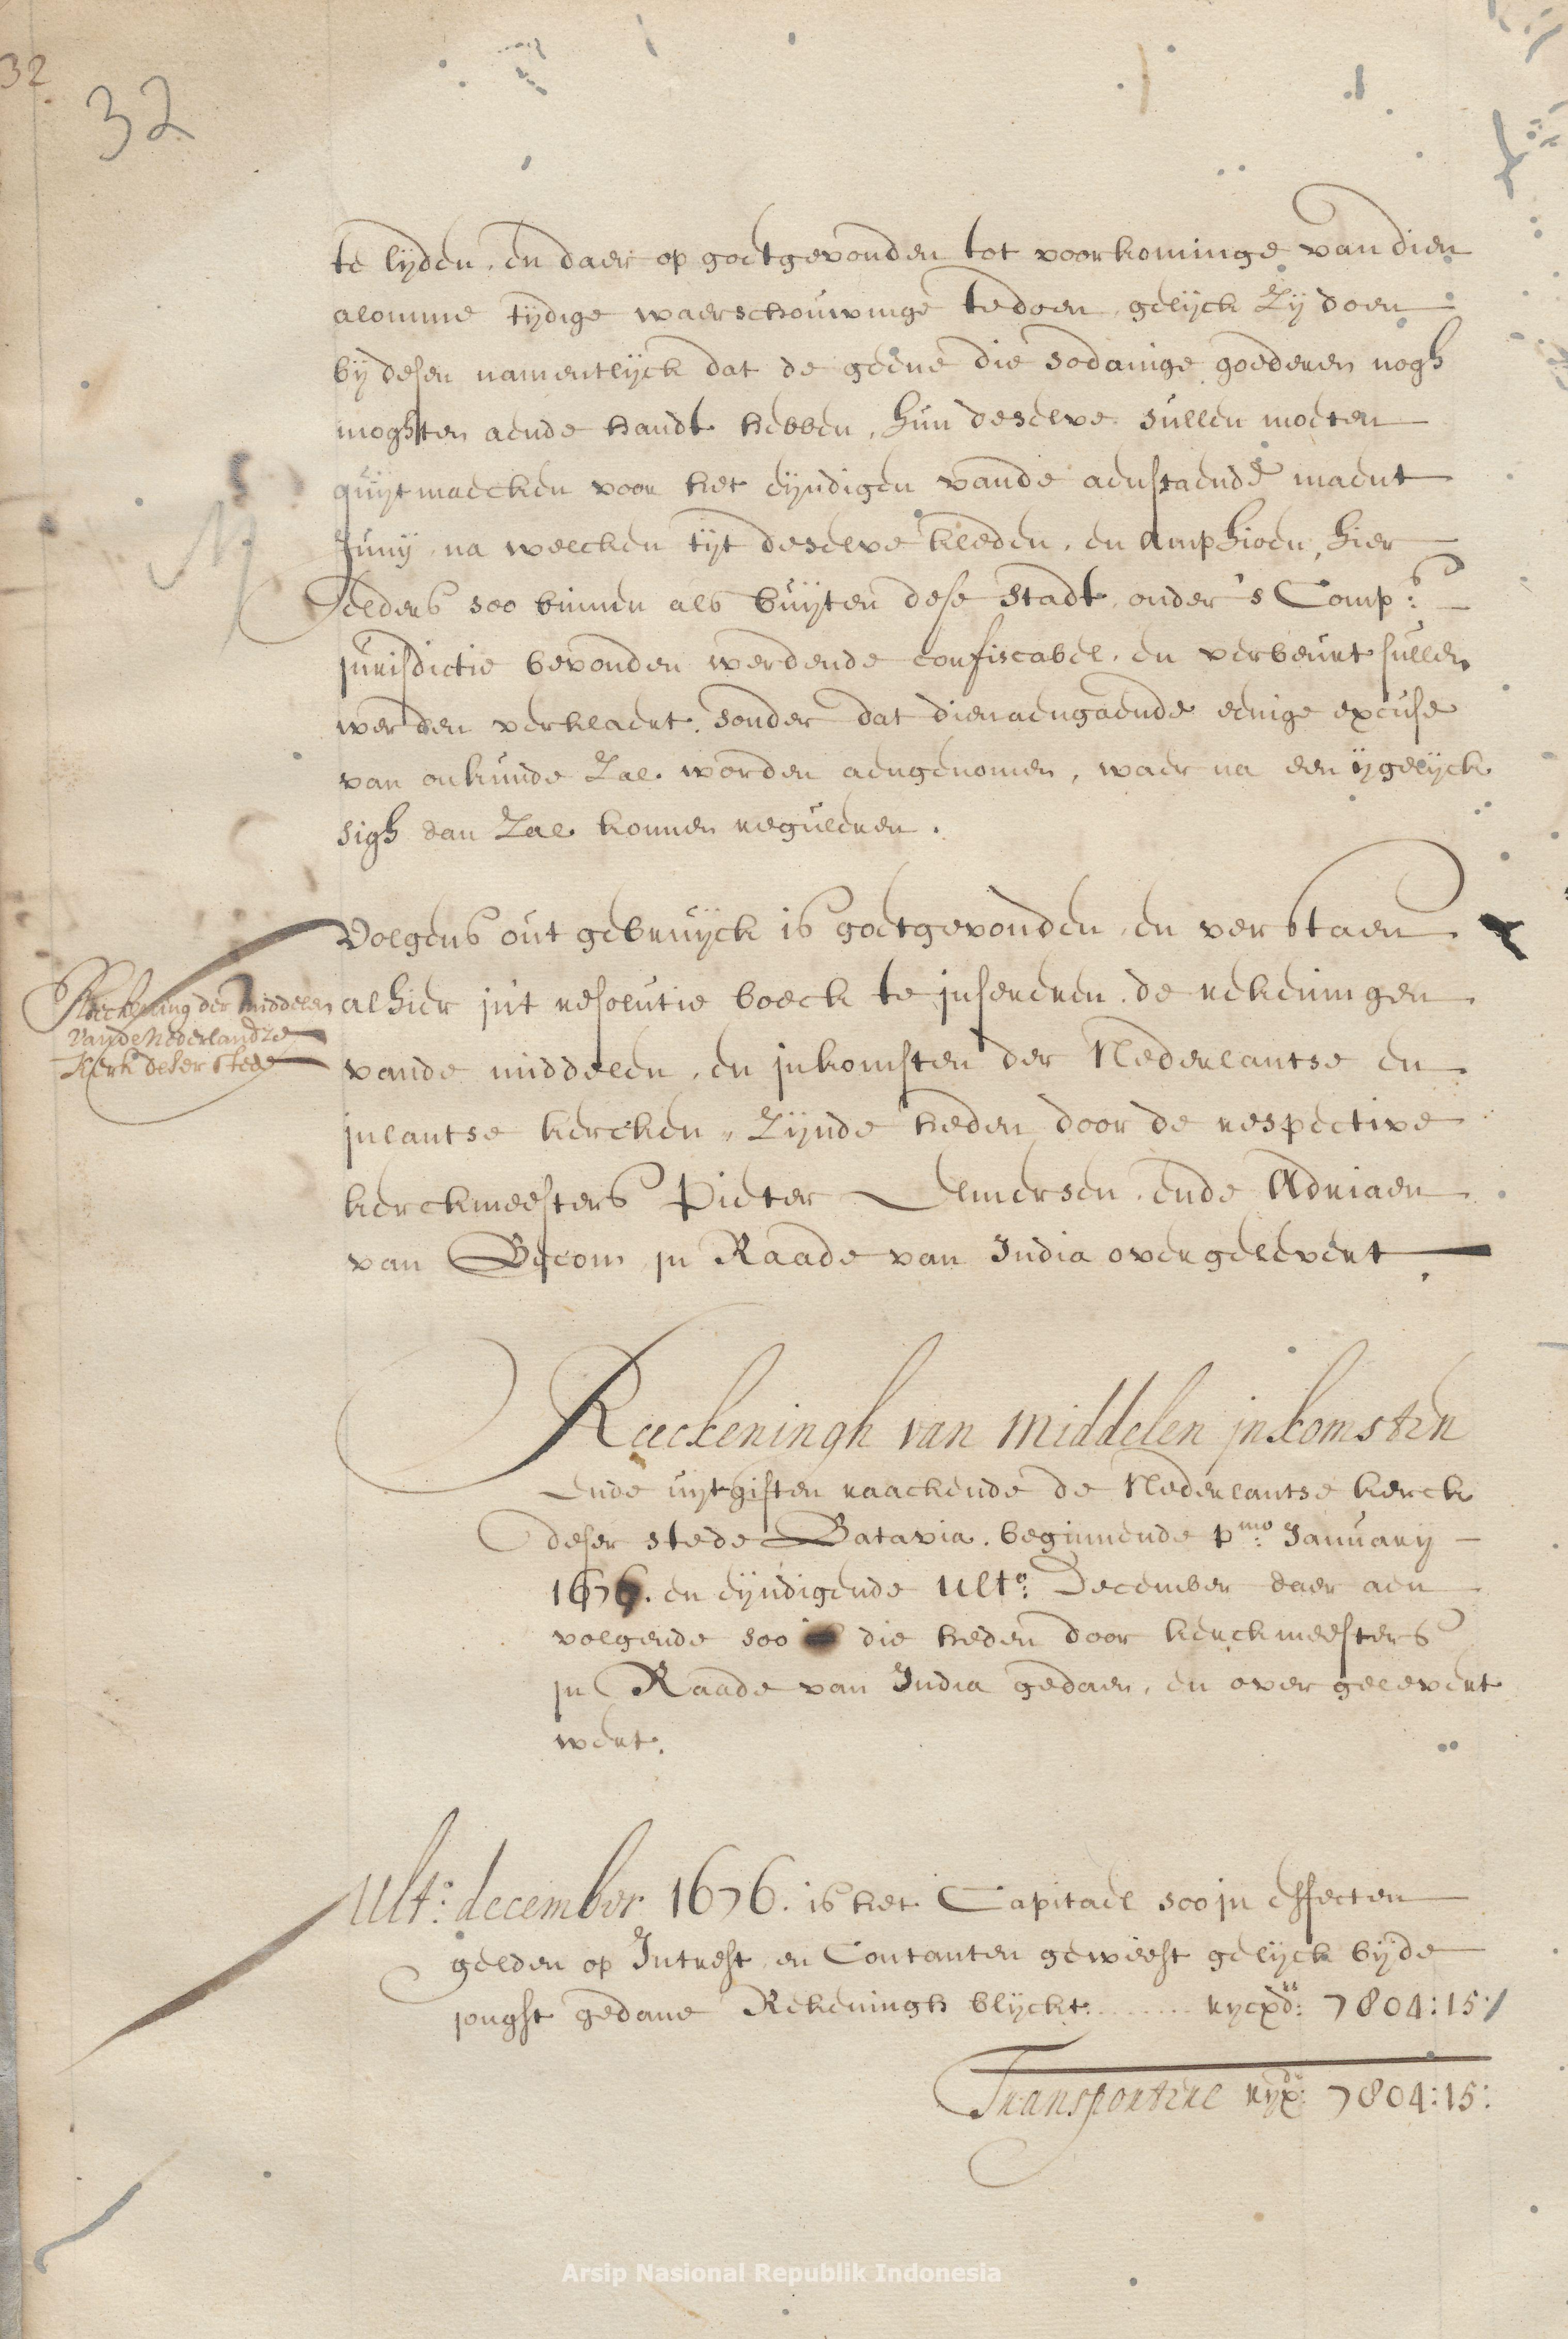 32
32
te lyden, en daer op goetgevonden tot voorkominge van dien
alomme tydige waerschouwinge te doen, gelyck Zy doen
by desen namentlyck dat de geene die sodanige goederen nogh
moghten aende handt hebben, hun deselve sullen moeten
quytmaecken voor het eyndigen vande aenstaende maent
Juny, na welcken tyt deselve kleden, en Amphioen, hier
elders soo binnen als buyten dese Stadt, onder 's Comps:
jurisdictie bevonden werdende confiscabel, en verbeurt sullen
werden verklaert, sonder dat dienaengaende eenige excuse
van onkunde Zal worden aengenomen, waer na een ygelyck
sigh dan Zal konnen reguleren.
Volgens out gebruyck is goetgevonden, en verstaen
Reeckening der middelen
van de Nederlandze
Kerk deser stede
alhier jnt resolutie boeck te jnsereren, de rekeningen
vande middelen, en jnkomsten der Nederlantse en
jnlantse kercken, Zynde heden door de respective
kerckmeesters Pieter Elmersen, ende Adriaen
van Becom jn Raade van India overgelevert
Reeckeningh van middelen jnkomsten
ende uytgiften raackende de Nederlantse kerck
deser stede Batavia, beginnende pmo: January
1676. en eyndigende Ulto: December daer aen
volgende soo die heden door kerckmeesters
jn Raade van India gedaen, en over gelevert
wert.
Ulto: december 1676. is het Capitael soo jn effecten
gelden op Intrest, en Contanten geweest gelyck byde
jonghst gedane Rekeningh blyckt ........ rycxds: 7804:15:/
Transportere ryxds: 7804:15:
Arsip Nasional Republik Indonesia